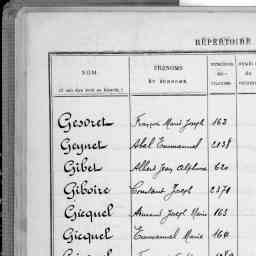 RÉPERTOIRE
NOM. PRÉNOMS ET SURNOMS NUMÉROS
Gesoret François Marie Joseph 162
Geynet Abel Emmanuel 2038
Gibet Albert Jean Alphonse 620
Giboire Constant Joseph 2371
Gicquel Armand Joseph Marie 163
Gicquel Emmanuel Marie 164